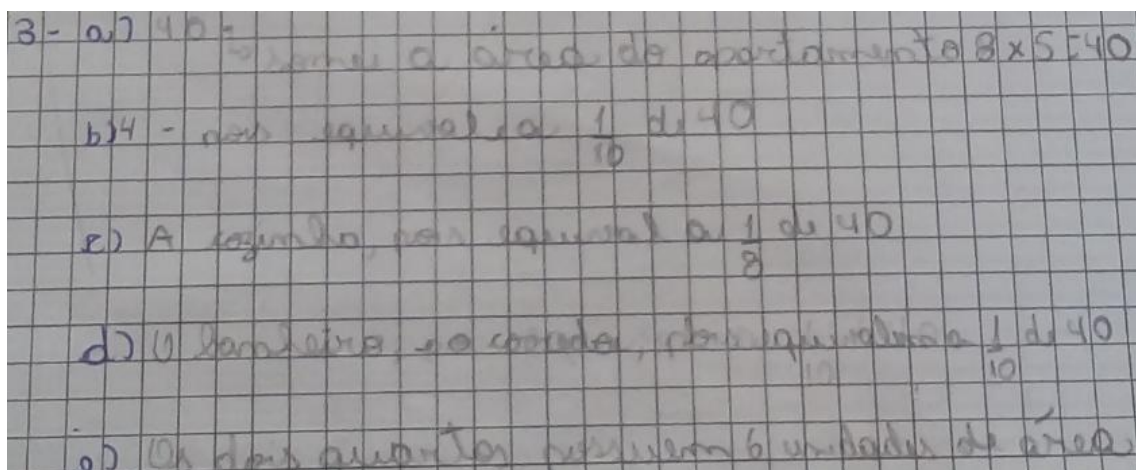 3- a) 40 = a área do apartamento 8 x 5 = 40
b) 4 - por equivaler a 1/10 de 40
c) A cozinha, por equivaler a 1/8 de 40
d) O banheiro e o corredor, por a 1/10 de 40
e) Os dois quartos possuem 6 unidades de área